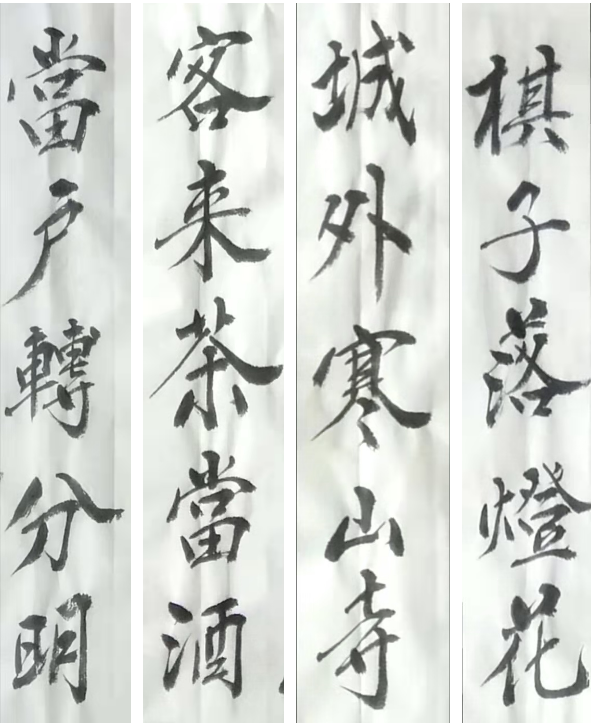 棋子落燈花
城外寒山寺
客来茶當酒
當户轉分明